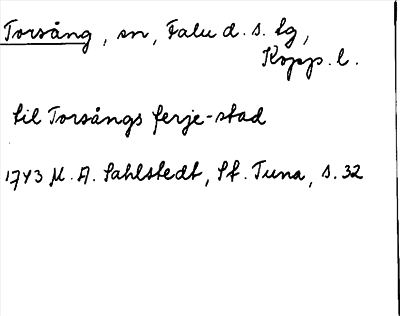 Torsång, sn, Falu d. s. lg,
Kopp. l.
til Torsångs ferje-stad
1743 M. A. Sahlstedt, St. Tuna, s. 32